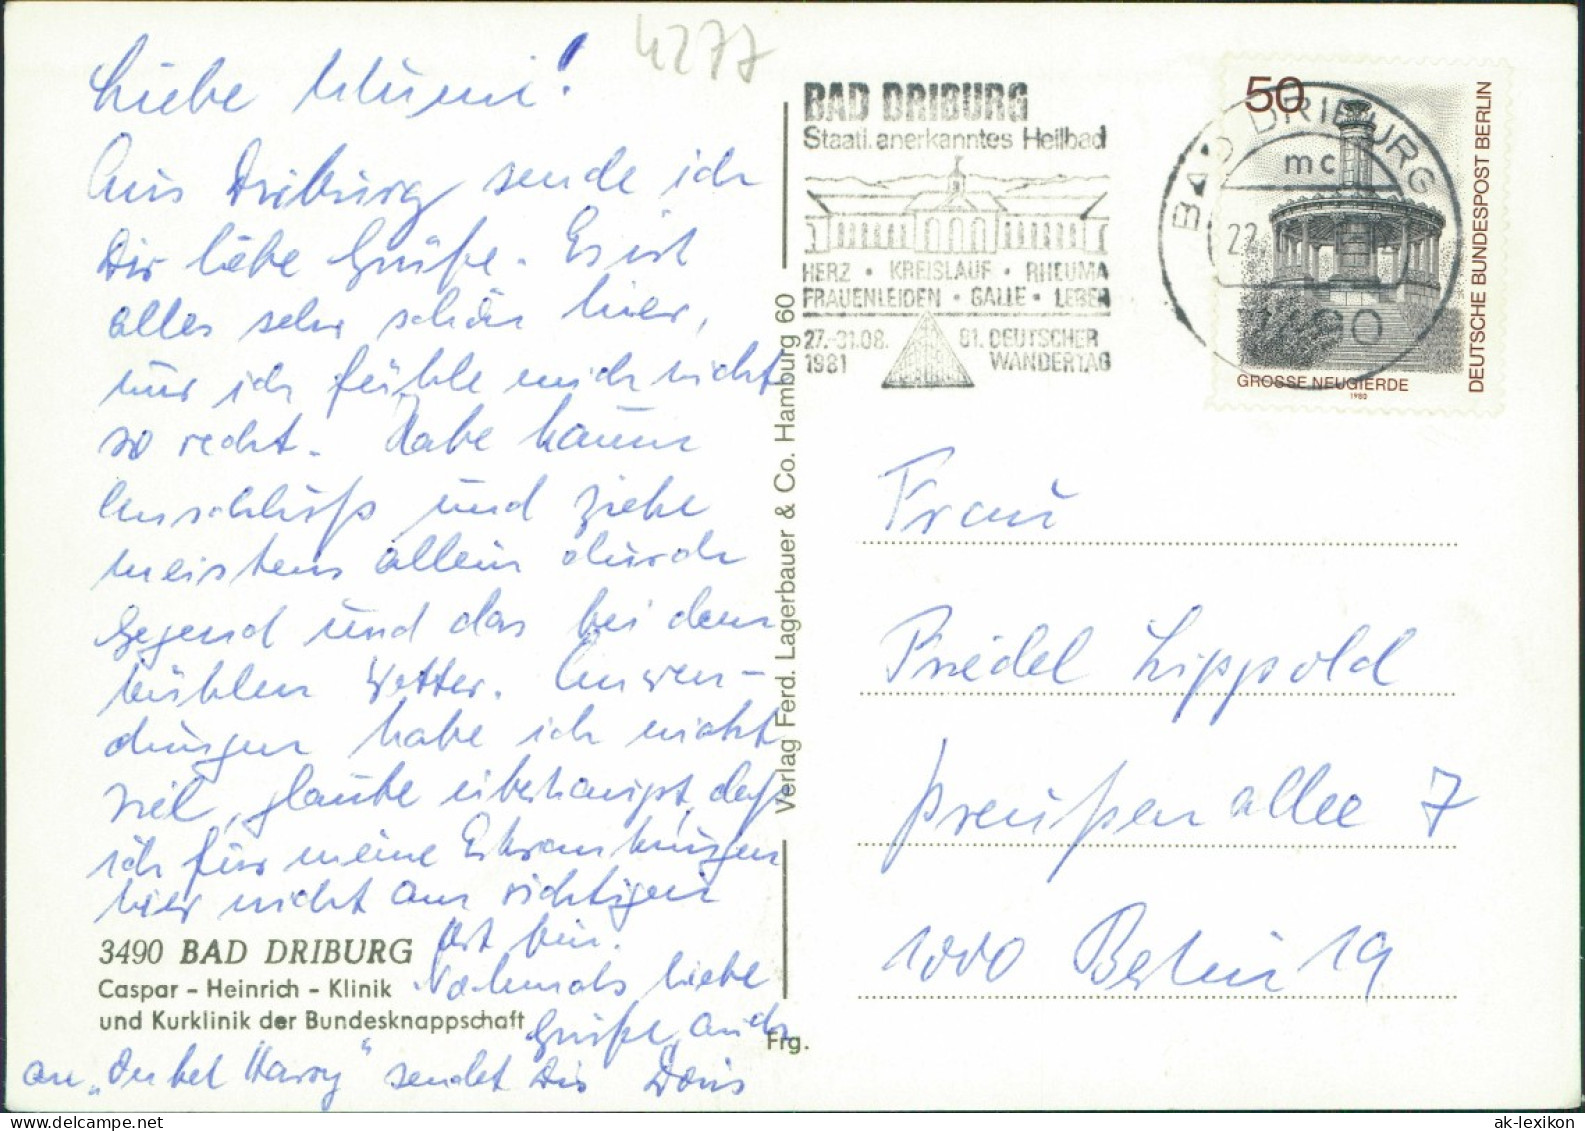 4277
Liebe Mumi!
Aus Driburg sende ich
Dir liebe Grüße. Es ist
alles sehr schön hier,
nur ich fühle mich nicht
so recht. Habe kaum
Anschluß und ziehe
meistens allein durch
Gegend und das bei dem
kühlen Wetter. Anwen-
dungen habe ich nicht
viel, glaube überhaupt, daß
ich für meine Erkrankungen
hier nicht am richtigen
Ort bin.
Nochmals liebe
Grüße, auch
an „Onkel Harry“ sendet Dir Doris
3490 BAD DRIBURG
Caspar - Heinrich - Klinik
und Kurklinik der Bundesknappschaft
Verlag Ferd. Lagerbauer & Co. Hamburg 60
Frg.
BAD DRIBURG
Staatl. anerkanntes Heilbad
HERZ • KREISLAUF • RHEUMA
FRAUENLEIDEN • GALLE • LEBER
27.-31.08. 81. DEUTSCHER
1981 WANDERTAG
BAD DRIBURG
mc
22.
50
DEUTSCHE BUNDESPOST BERLIN
GROSSE NEUGIERDE
1980
Frau
Friedel Lippold
Preußenallee 7
1000 Berlin 19
3494
ak-lexikon